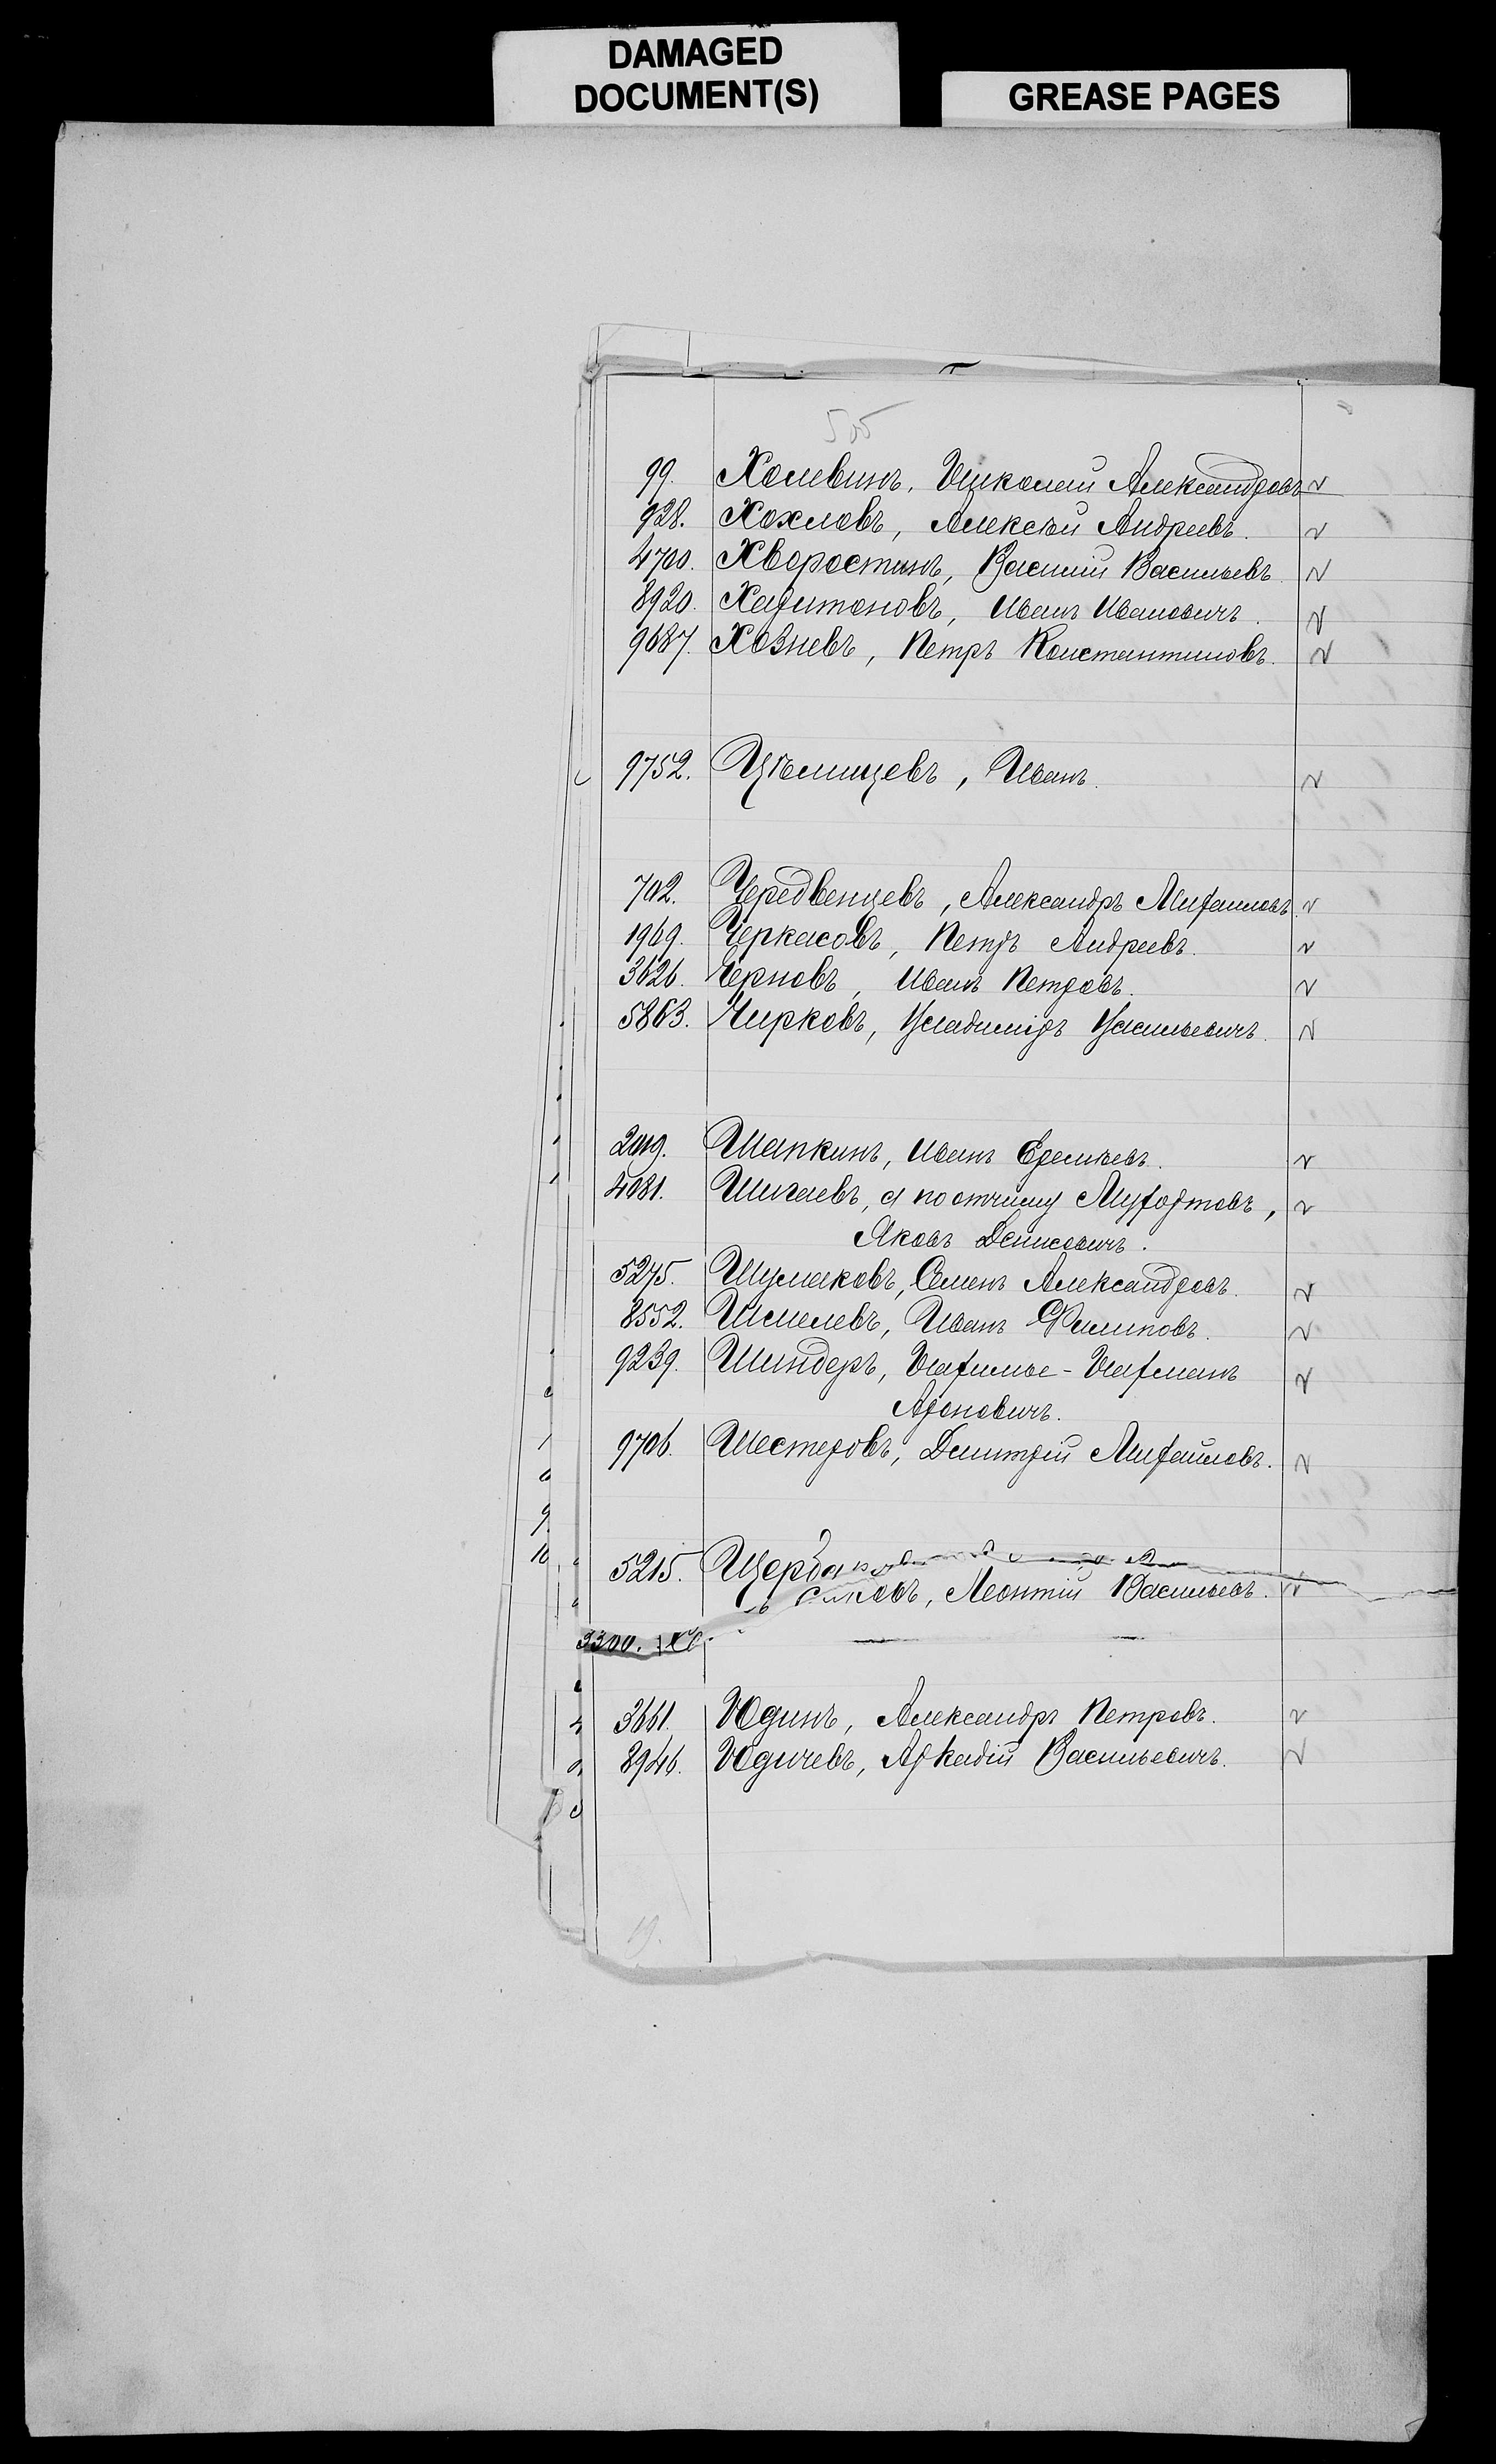 DAMAGED
DOCUMENT(S)
GREASE PAGES
99. Холевинъ, Николай Александровъ
928. Хохловъ, Алексѣй Андреевъ.
4700. Хворостинъ, Василій Васильевъ.
8920. Харитоновъ, Иванъ Ивановичъ.
9687. Хозневъ, Петръ Константиновъ.
9752. Цѣлищевъ, Иванъ.
702. Чередвенцевъ, Александръ Михайловъ.
1969. Черкасовъ, Петръ Андреевъ.
3626. Черновъ, Иванъ Петровъ.
5863. Чирковъ, Владиміръ Васильевичъ.
Шапкинъ, Иванъ Еремѣевъ.
4081. Шигаевъ, а по отчиму Мухортовъ,
Яковъ Денисовичъ.
5275. Шумаковъ, Семенъ Александровъ.
8552. Шмелевъ, Иванъ Филиповъ.
9239. Шиндеръ,
Ароновичъ.
9706. Шестеровъ, Дмитрій Михайловъ.
5215. Щербаковъ
Леонтій Васильевъ.
3300.
3661. Юдинъ, Александръ Петровъ.
8946. Юдичевъ, Аркадій Васильевичъ.
19.